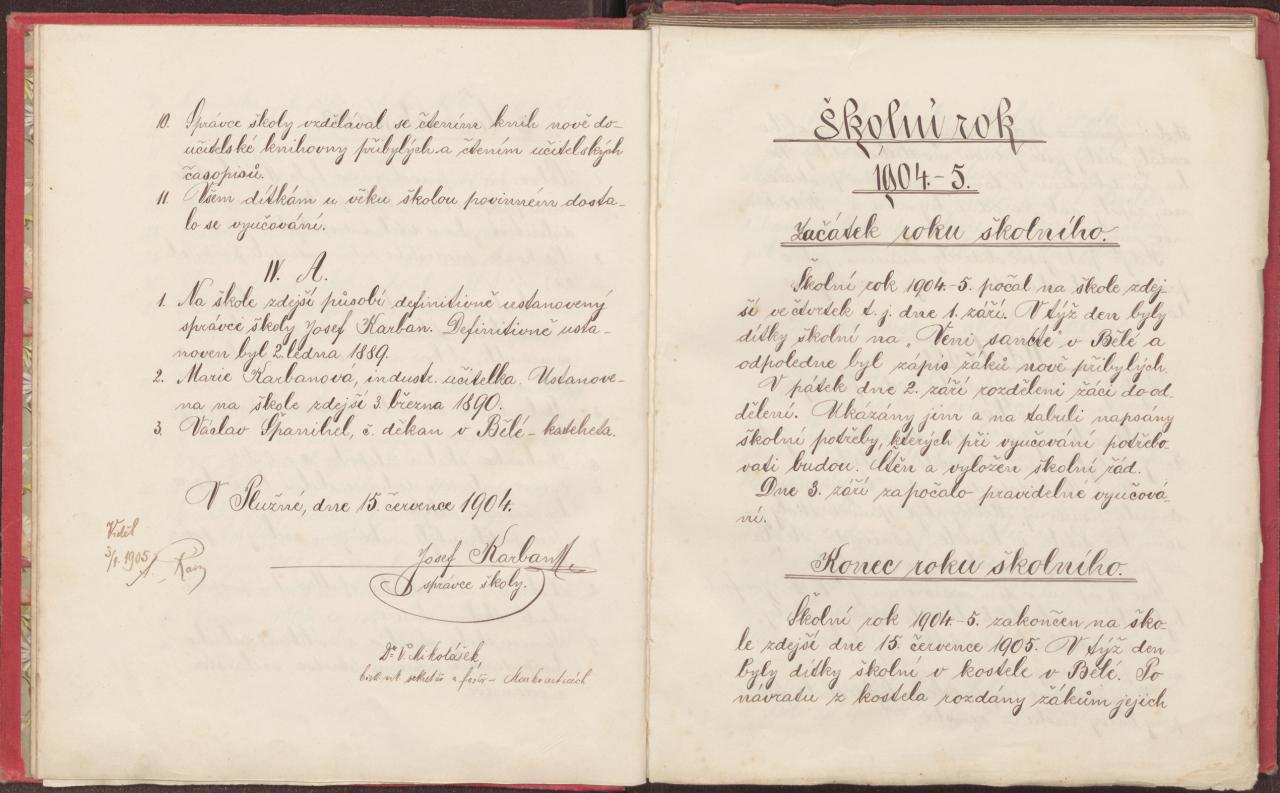 10. Správce školy vzdělával se čtením knih nově do-
učitelské knihovny přibylých a čtením učitelských
časopisů.
11. Všem dítkám u věku školou povinném dosta-
lo se vyučování.
IV. A.
1. Na škole zdejší působí definitivně ustanovený
správce školy Josef Karban. Definitivně usta-
noven byl 2. ledna 1889.
2. Marie Karbanová, industr. učitelka. Ustanove-
na na škole zdejší 3. března 1890.
3. Václav Španihel, č. děkan v Bělé - katecheta.
V Plužné, dne 15. července 1904.
Viděl
3/1. 1905
Josef Karban
správce školy.
Dr. V. Mikolášek
bisk. vik. sekretář a farář
Školní rok
1904.-5.
Začátek roku školního.
Školní rok 1904-5. počal na škole zdej-
ší ve čtvrtek t. j. dne 1. září. V týž den byly
dítky školní na „Veni sancte" v Bělé a
odpoledne byl zápis žáků nově přibylých.
V pátek dne 2. září rozděleni žáci do od-
dělení. Ukázány jim a na tabuli napsány
školní potřeby, kterých při vyučování potřebo-
vati budou. Čtěn a vyložen školní řád.
Dne 3. září započalo pravidelné vyučová-
ní.
Konec roku školního.
Školní rok 1904-5. zakončen na ško-
le zdejší dne 15. července 1905. V týž den
byly dítky školní v kostele v Bělé. Po
návratu z kostela rozdány žákům jejich